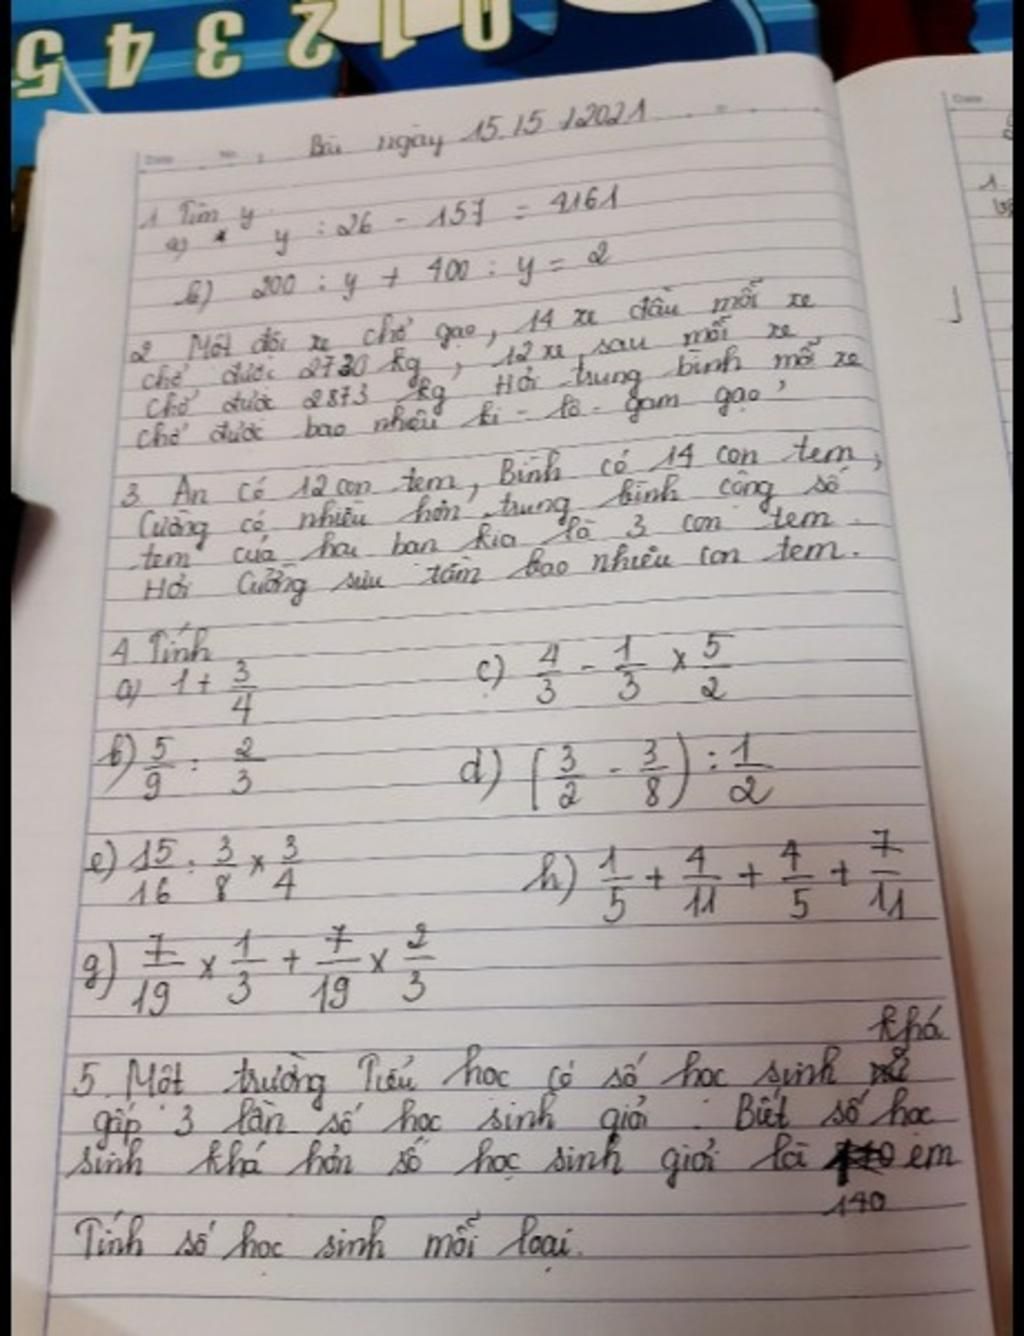 0 1 2 3 4 5
Bài ngày 15.15.12021
1 Tìm y
a) y : 26 - 157 = 4161
b) 200 : y + 400 : y = 2
2 Một đội xe chở gạo, 14 xe đầu mỗi xe
chở được 2730 kg, 12 xe sau mỗi xe
chở được 2873 kg Hỏi trung bình mỗi xe
chở được bao nhiêu ki - lô - gam gạo?
3 An có 12 con tem, Bình có 14 con tem,
Cường có nhiều hơn trung bình cộng số
tem của hai bạn kia là 3 con tem.
Hỏi Cường sưu tầm bao nhiêu con tem.
4 Tính
a) 1 + 3/4 c) 4/3 - 1/3 x 5/2
b) 5/9 : 2/3 d) (3/2 - 3/8) : 1/2
e) 15/16 : 3/8 x 3/4 h) 1/5 + 4/11 + 4/5 + 7/11
g) 7/19 x 1/3 + 7/19 x 2/3
5. Một trường Tiểu học có số học sinh khá
gấp 3 lần số học sinh giỏi. Biết số học
sinh khá hơn số học sinh giỏi là 140 em
Tính số học sinh mỗi loại.